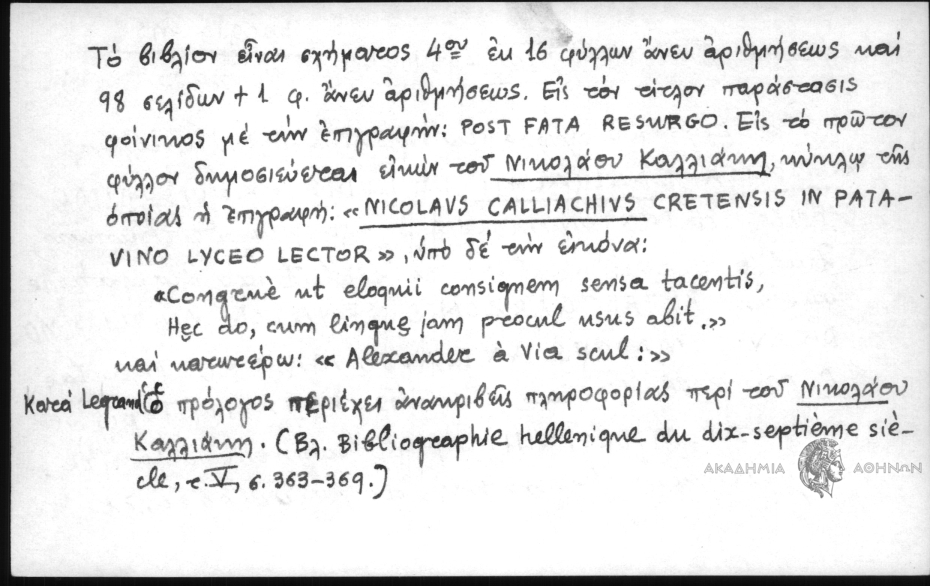 Τό βιβλίον εἶναι σχήματος 4ου ἐκ 16 φύλλων ἄνευ ἀριθμήσεως καί
98 σελίδων + 1 φ. ἄνευ ἀριθμήσεως. Εἰς τόν τίτλον παράστασις
φοίνικος μέ τήν ἐπιγραφήν: POST FATA RESURGO. Εἰς τό πρῶτον
φύλλον δημοσιεύεται εἰκών τοῦ Νικολάου Καλλιάκη, κύκλῳ τῆς
ὁποίας ἡ ἐπιγραφή: «NICOLAVS CALLIACHIVS CRETENSIS IN PATA-
VINO LYCEO LECTOR», ὑπό δέ τήν εἰκόνα:
«Congruè ut eloquii consignem sensa tacentis,
Hęc do, cum linguę jam procul usus abit.»
καί κατωτέρω: « Alexander à Via scul:»
Κατά Legrand ὁ πρόλογος περιέχει ἀνακριβεῖς πληροφορίας περί τοῦ Νικολάου
Καλλιάκη. (Βλ. Bibliographie hellenique du dix-septième siè-
cle, τ. V, σ. 363-369.)
ΑΚΑΔΗΜΙΑ ΑΘΗΝΩΝ